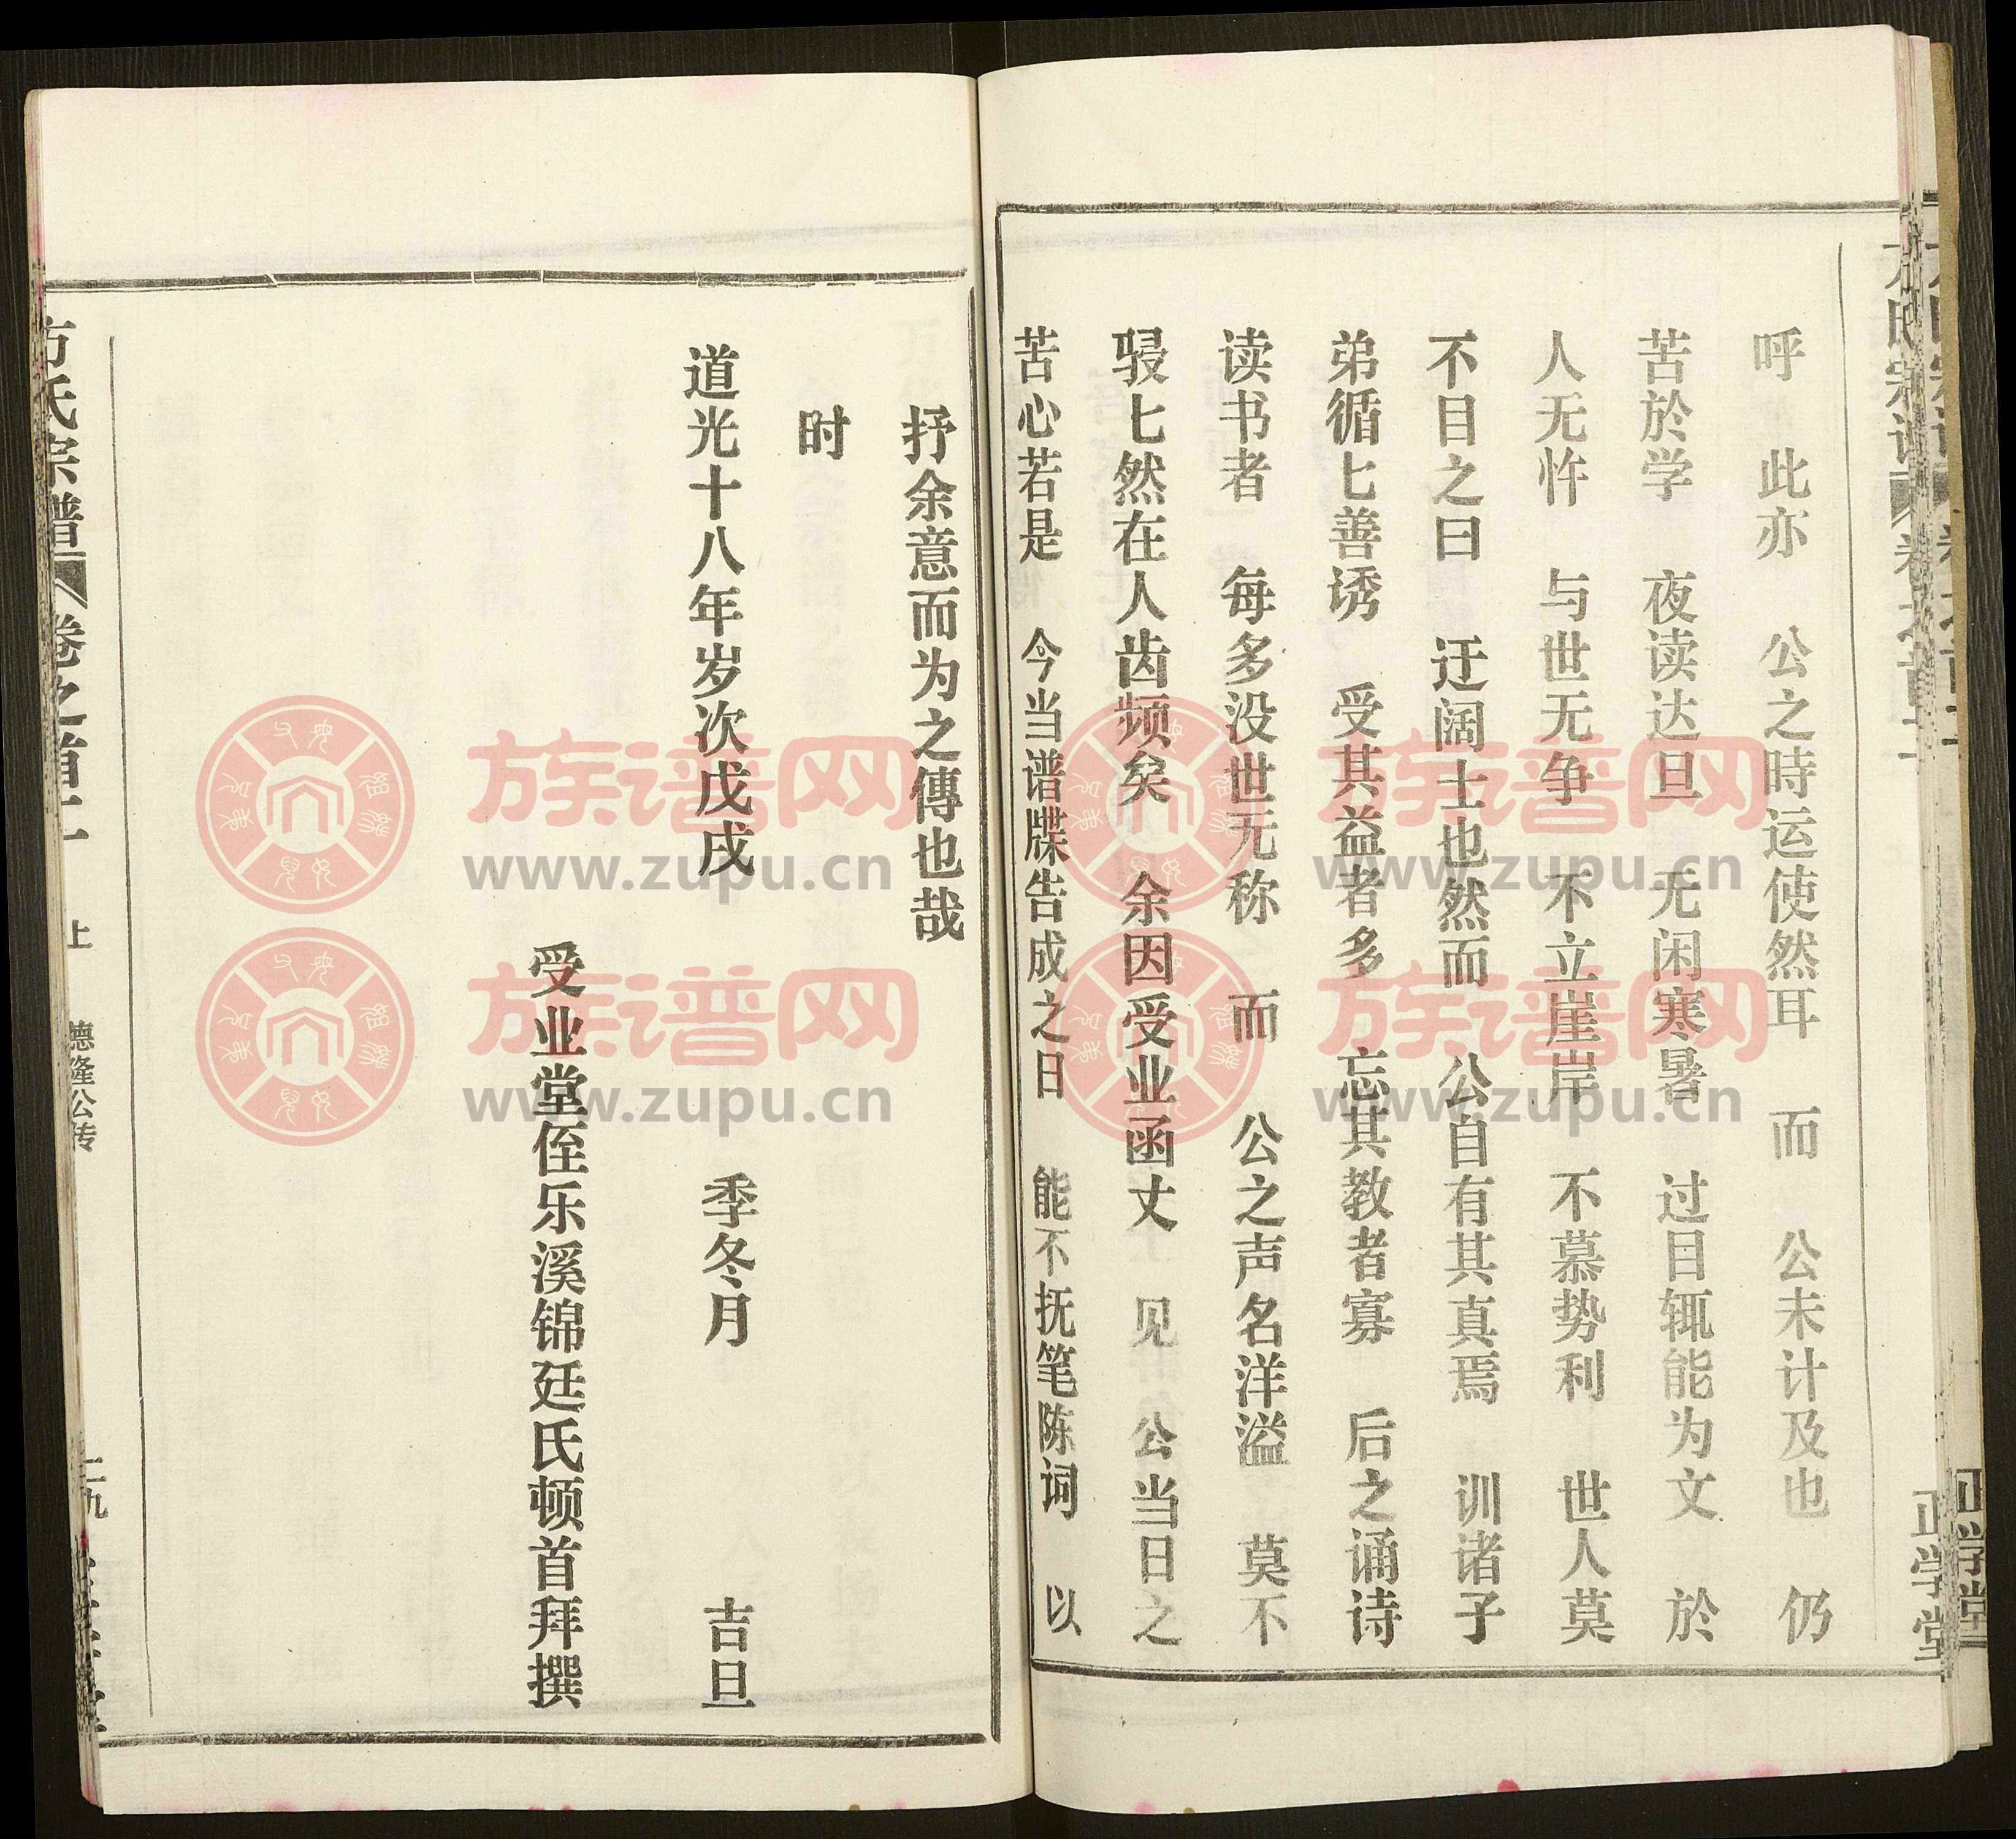 正学堂
呼 此亦 公之時运使然耳 而 公未计及也 仍
苦於学 夜读达旦 无闲寒暑 过目辄能为文 於
人无忤 与世无争 不立崖岸 不慕势利 世人莫
不目之曰 迂阔士也然而 公自有其真焉 训诸子
弟循匕善诱 受其益者多 忘其教者寡 后之诵诗
读书者 每多没世无称 而 公之声名洋溢 莫不
骎七然在人齿频矣 余因受业函丈 见 公当日之
苦心若是 今当谱牒告成之日 能不抚笔陈词 以
抒余意而为之傳也哉
时
道光十八年岁次戊戌 季冬月 吉旦
受业堂侄乐溪锦廷氏顿首拜撰
方氏宗谱 卷之首 上 德隆公传
族谱网
www.zupu.cn
族谱网
www.zupu.cn
族谱网
www.zupu.cn
族谱网
www.zupu.cn